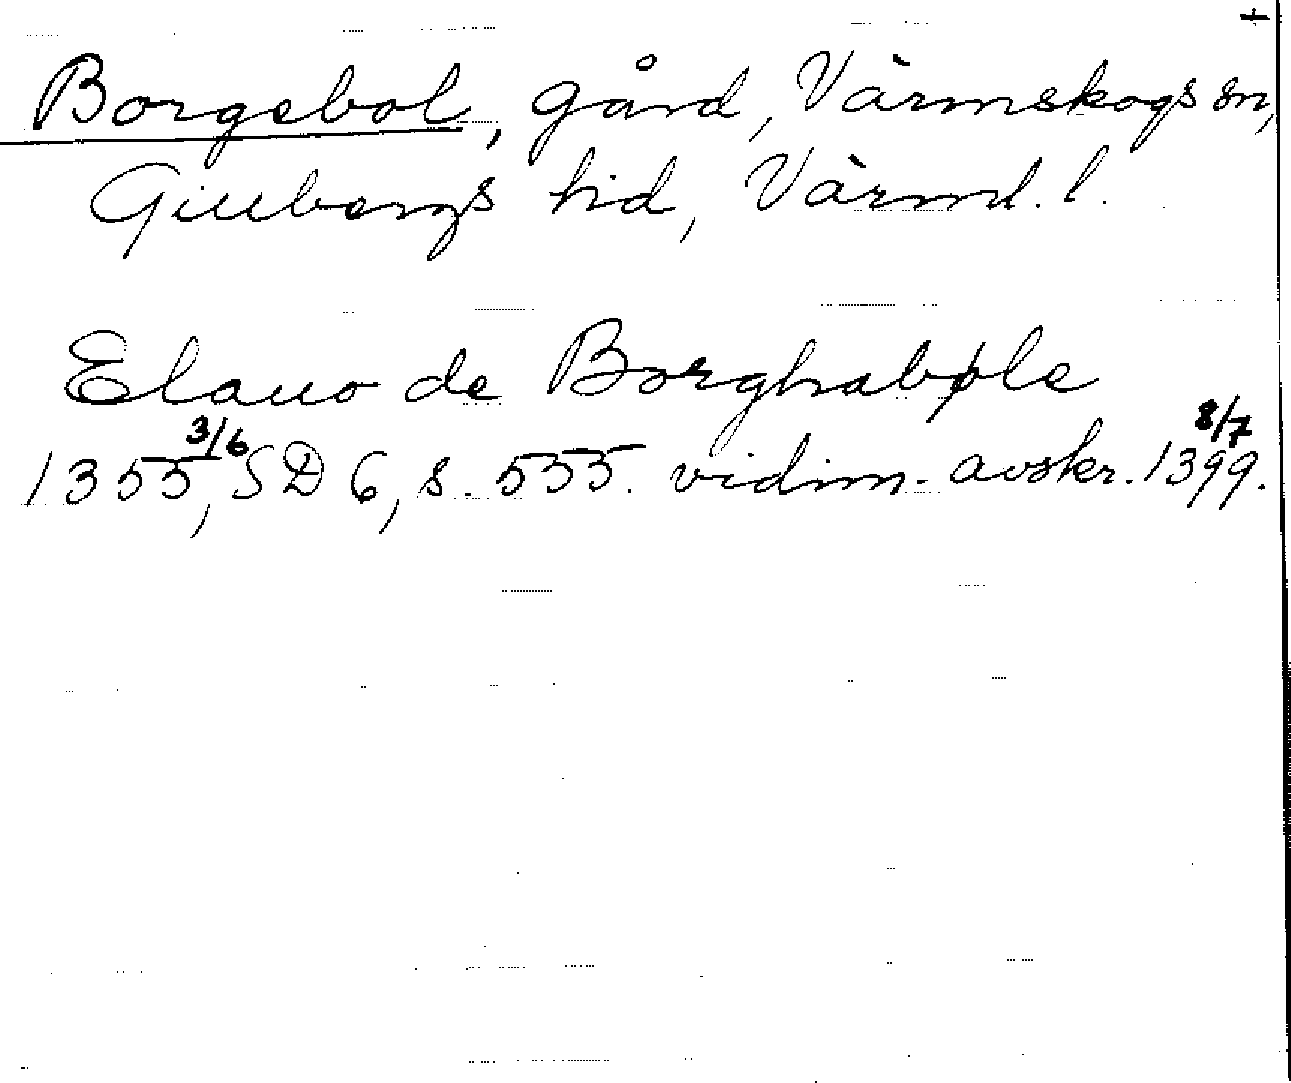 +
Borgebol, gård, Värmskogs sn,
Gillbergs hd, Värml. l.
Elauo de Borghabøle
1355 3/6, SD 6, s. 555. vidim. avskr. 1399 8/7.